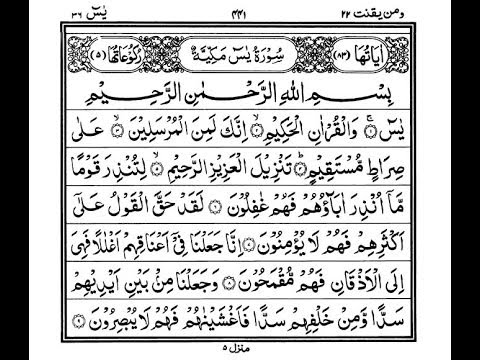 ومن يقنت ٢٢ ٤٤١ يٰسٓ ٣٦
اٰيَاتُهَا (٨٣) سُوْرَةُ يٰسٓ مَكِّيَّةٌ رُكُوْعَاتُهَا (٥)
بِسْمِ اللّٰهِ الرَّحْمٰنِ الرَّحِيْمِ
يٰسٓ ۝ وَالْقُرْاٰنِ الْحَكِيْمِ ۝ اِنَّكَ لَمِنَ الْمُرْسَلِيْنَ ۝ عَلٰى
صِرَاطٍ مُّسْتَقِيْمٍ ۝ تَنْزِيْلَ الْعَزِيْزِ الرَّحِيْمِ ۝ لِتُنْذِرَ قَوْمًا
مَّاۤ اُنْذِرَ اٰبَآؤُهُمْ فَهُمْ غٰفِلُوْنَ ۝ لَقَدْ حَقَّ الْقَوْلُ عَلٰۤى
اَكْثَرِهِمْ فَهُمْ لَا يُؤْمِنُوْنَ ۝ اِنَّا جَعَلْنَا فِيْۤ اَعْنَاقِهِمْ اَغْلٰلًا فَهِىَ
اِلَى الْاَذْقَانِ فَهُمْ مُّقْمَحُوْنَ ۝ وَجَعَلْنَا مِنْۢ بَيْنِ اَيْدِيْهِمْ
سَدًّا وَّمِنْ خَلْفِهِمْ سَدًّا فَاَغْشَيْنٰهُمْ فَهُمْ لَا يُبْصِرُوْنَ ۝ ٩
منزل ٥